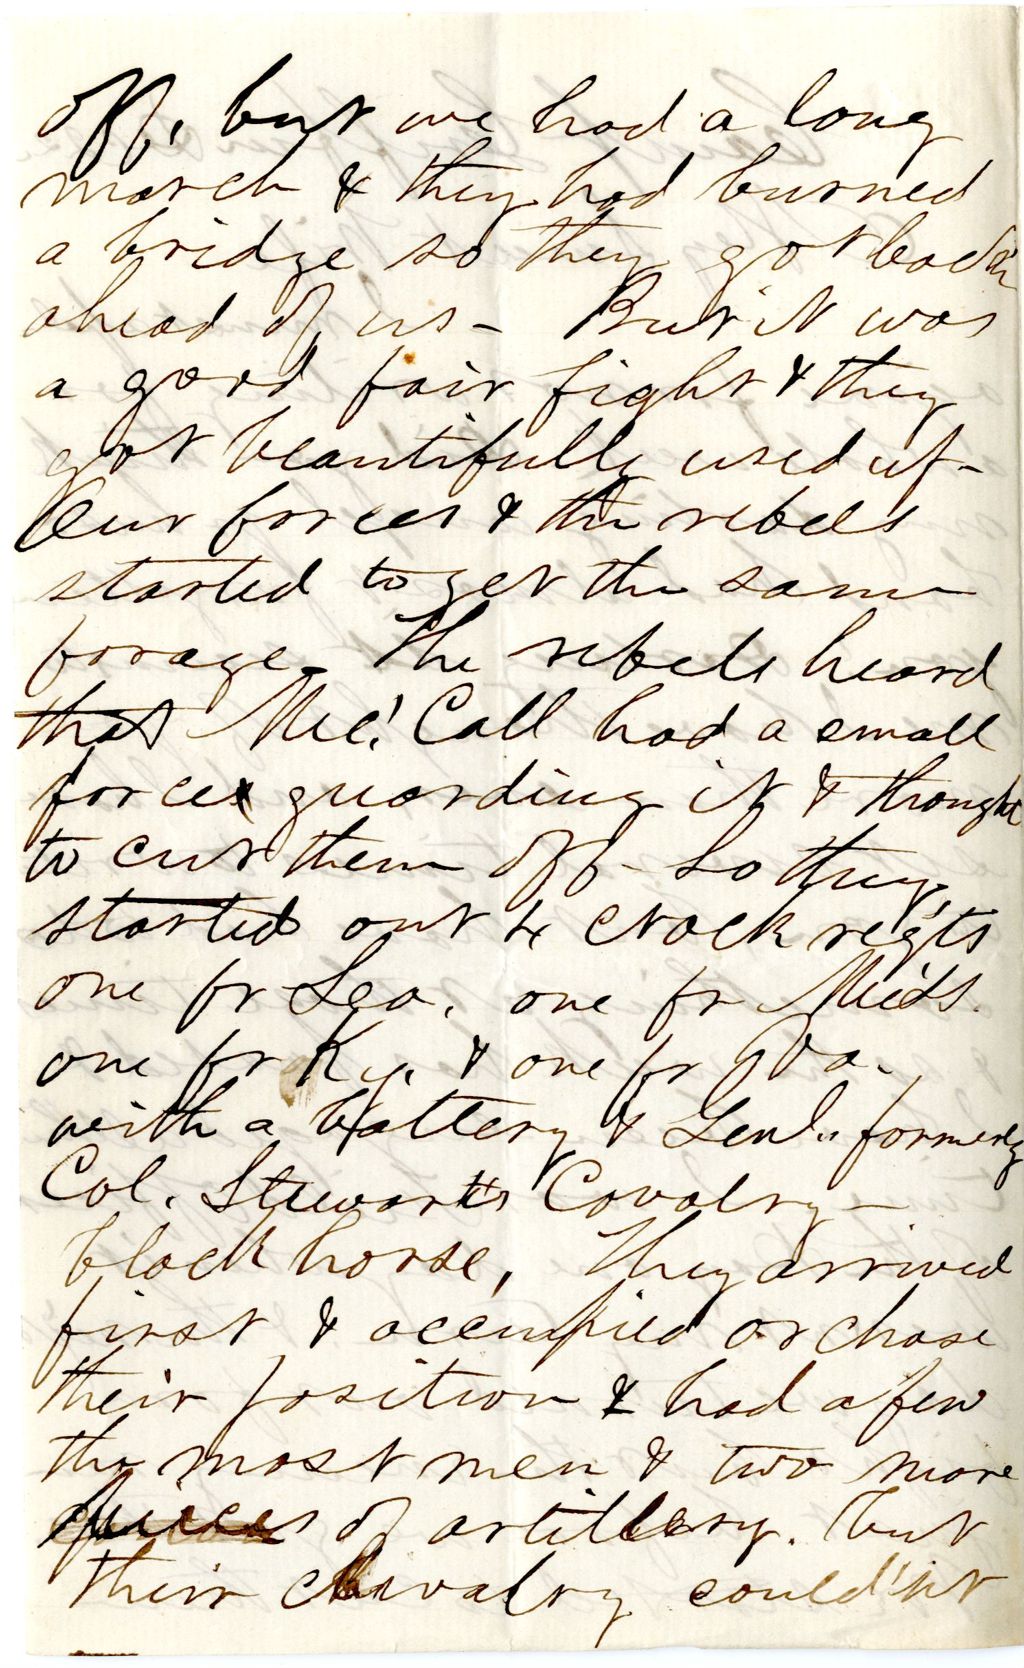 off, but we had a long
march & they had burned
a bridge so they got back
ahead of us - But it was
a good fair fight & they
got beautifully used up -
Our forces & the rebels
started to get the same
forage. The rebels heard
that Mc'Call had a small
force guarding it & thought
to cut them off - So they
started out 4 crack reg'ts
one fr Geo. one fr Miss.
one fr Ky. & one fr Va.
with a battery & Genl. formerly
Col. Stewarts Cavalry -
black horse, They arrived
first & occupied or chose
their position & had a few
the most men & two more
pieces of artillery. but
their chivalry could'nt